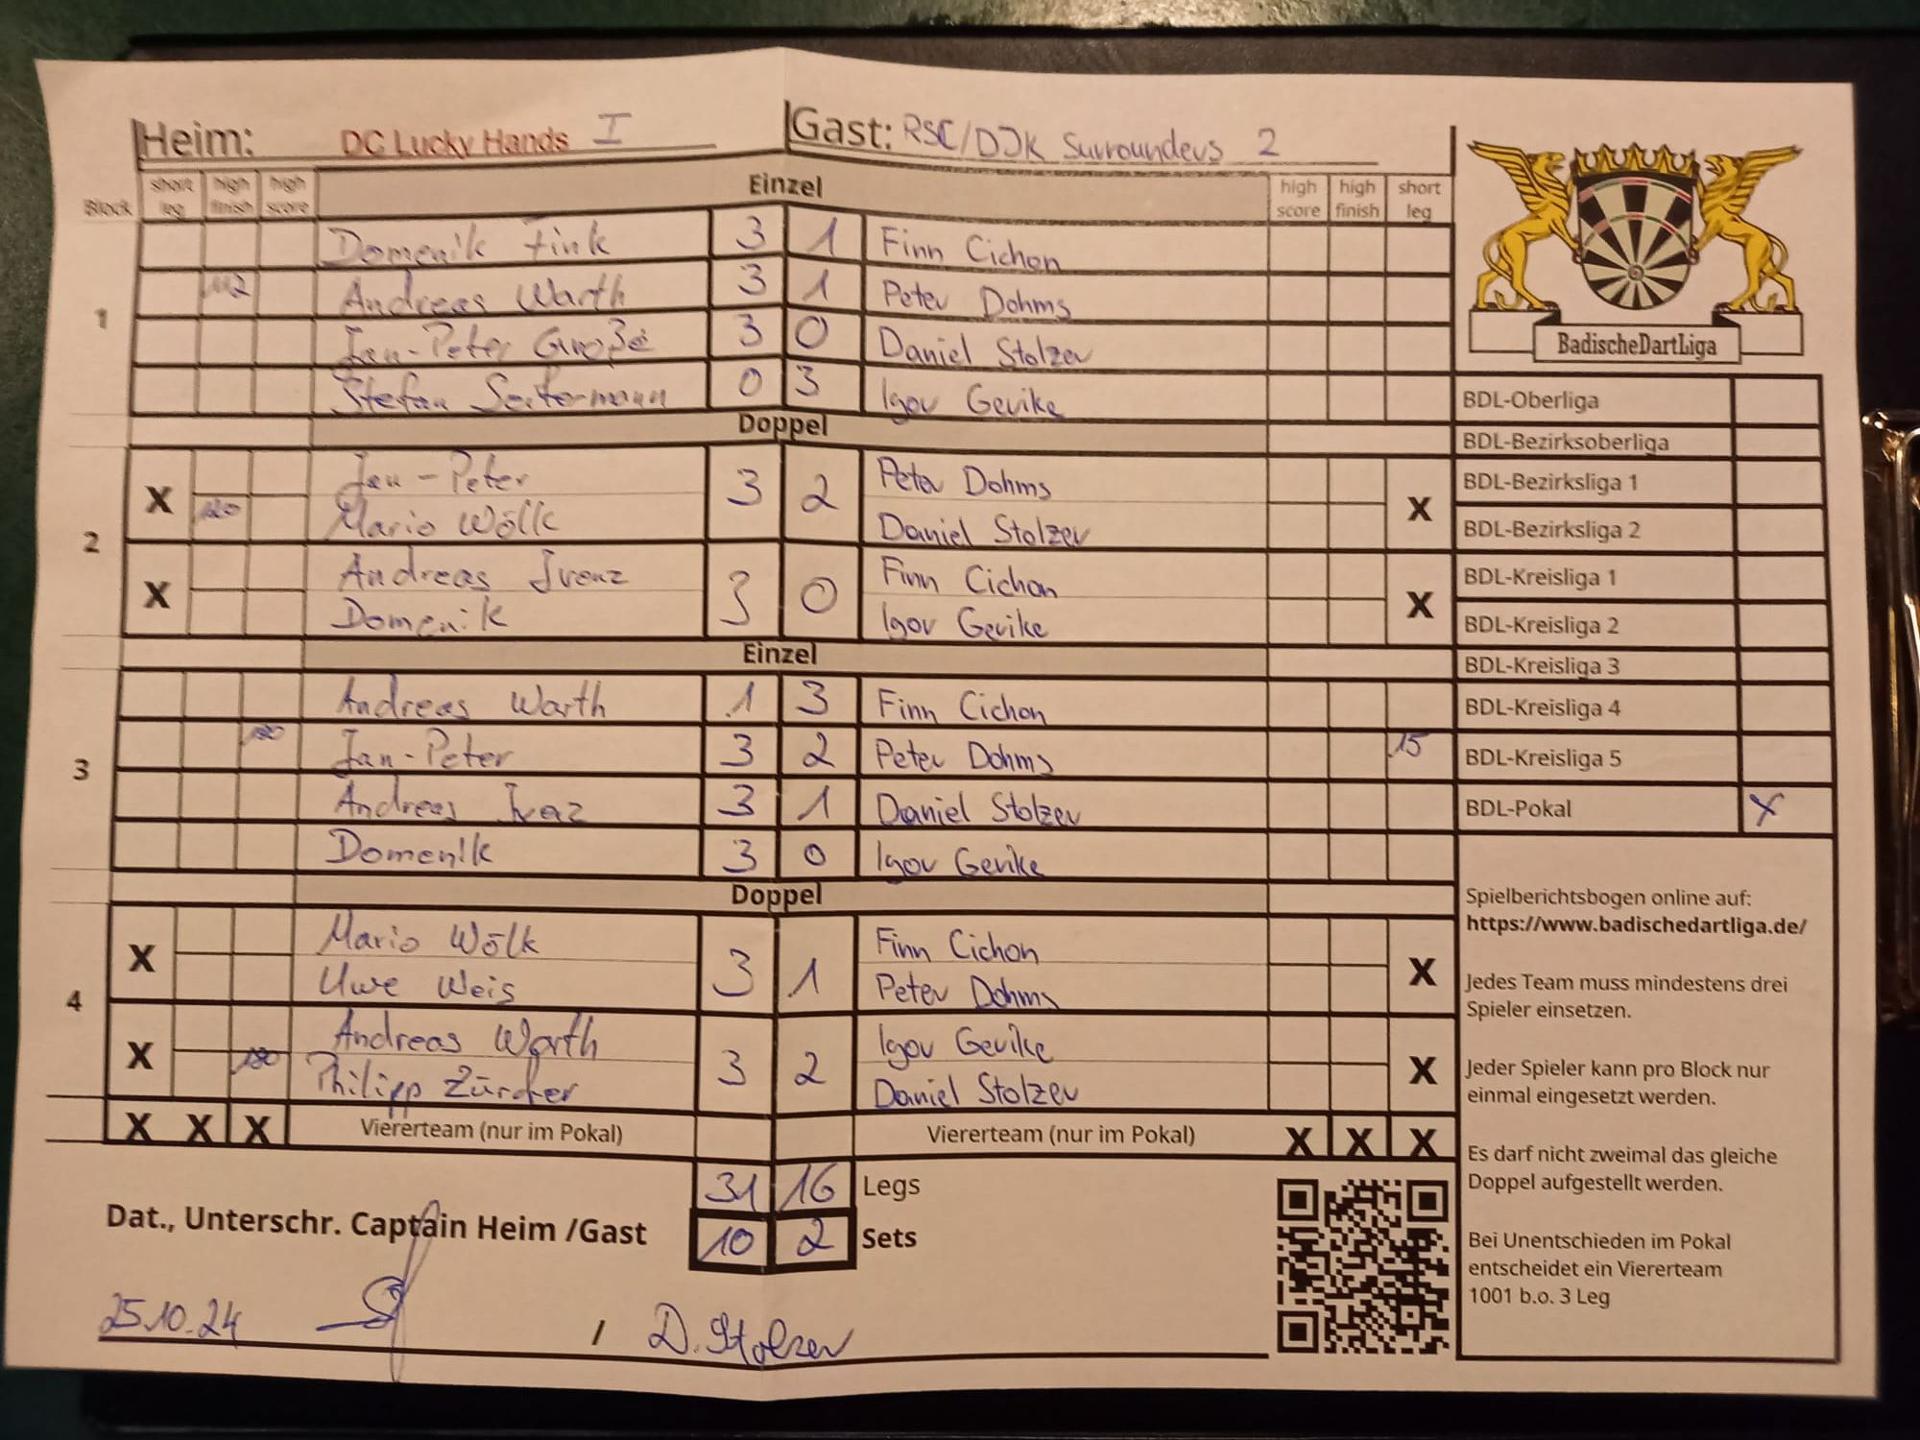 Heim: DC Lucky Hands I Gast: RSC/DJK Surrounders 2
Block short leg high finish high score Einzel high score high finish short leg
Domenik Fink 3 1 Finn Cichon
1 112 Andreas Warth 3 1 Peter Dohms
Jan-Peter Große 3 0 Daniel Stolzer
Stefan Seitermann 0 3 Igor Gerike
Doppel
2
X Jan-Peter 3 2 Peter Dohms X
120 Mario Wölk Daniel Stolzer
X Andreas 3 0 Finn Cichon X
Domenik Igor Gerike
Einzel
3
Andreas Warth 1 3 Finn Cichon
180 Jan-Peter 3 2 Peter Dohms 15
Andreas 3 1 Daniel Stolzer
Domenik 3 0 Igor Gerike
Doppel
4
X Mario Wölk 3 1 Finn Cichon X
Uwe Weis Peter Dohms
X Andreas Warth 3 2 Igor Gerike X
180 Philipp Zürcher Daniel Stolzer
X X X Viererteam (nur im Pokal) Viererteam (nur im Pokal) X X X
31 16 Legs
Dat., Unterschr. Captain Heim /Gast 10 2 Sets
25.10.24 / D. Stolzer
BadischeDartLiga
BDL-Oberliga
BDL-Bezirksoberliga
BDL-Bezirksliga 1
BDL-Bezirksliga 2
BDL-Kreisliga 1
BDL-Kreisliga 2
BDL-Kreisliga 3
BDL-Kreisliga 4
BDL-Kreisliga 5
BDL-Pokal X
Spielberichtsbogen online auf:
https://www.badischedartliga.de/
Jedes Team muss mindestens drei
Spieler einsetzen.
Jeder Spieler kann pro Block nur
einmal eingesetzt werden.
Es darf nicht zweimal das gleiche
Doppel aufgestellt werden.
Bei Unentschieden im Pokal
entscheidet ein Viererteam
1001 b.o. 3 Leg